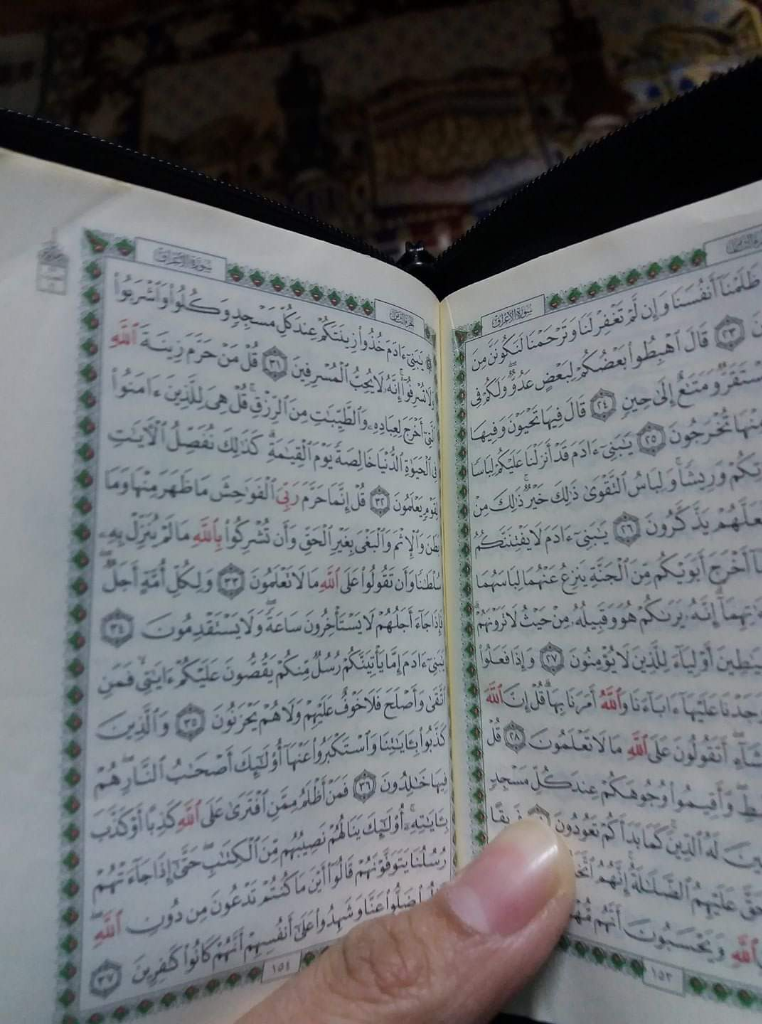 سورة الأعراف
ظَلَمْنَآ أَنفُسَنَا وَإِن لَّمْ تَغْفِرْ لَنَا وَتَرْحَمْنَا لَنَكُونَنَّ مِنَ
٢٣ قَالَ ٱهْبِطُوا۟ بَعْضُكُمْ لِبَعْضٍ عَدُوٌّ ۖ وَلَكُمْ فِى
مُسْتَقَرٌّ وَمَتَٰعٌ إِلَىٰ حِينٍ ٢٤ قَالَ فِيهَا تَحْيَوْنَ وَفِيهَا
وَمِنْهَا تُخْرَجُونَ ٢٥ يَٰبَنِىٓ ءَادَمَ قَدْ أَنزَلْنَا عَلَيْكُمْ لِبَاسًا
وَرِيشًا ۖ وَلِبَاسُ ٱلتَّقْوَىٰ ذَٰلِكَ خَيْرٌ ۚ ذَٰلِكَ مِنْ
لَعَلَّهُمْ يَذَّكَّرُونَ ٢٦ يَٰبَنِىٓ ءَادَمَ لَا يَفْتِنَنَّكُمُ
أَخْرَجَ أَبَوَيْكُم مِّنَ ٱلْجَنَّةِ يَنزِعُ عَنْهُمَا لِبَاسَهُمَا
إِنَّهُۥ يَرَىٰكُمْ هُوَ وَقَبِيلُهُۥ مِنْ حَيْثُ لَا تَرَوْنَهُمْ ۗ
أَوْلِيَآءَ لِلَّذِينَ لَا يُؤْمِنُونَ ٢٧ وَإِذَا فَعَلُوا۟
وَجَدْنَا عَلَيْهَآ ءَابَآءَنَا وَٱللَّهُ أَمَرَنَا بِهَا ۗ قُلْ إِنَّ ٱللَّهَ
أَتَقُولُونَ عَلَى ٱللَّهِ مَا لَا تَعْلَمُونَ ٢٨ قُلْ
وَأَقِيمُوا۟ وُجُوهَكُمْ عِندَ كُلِّ مَسْجِدٍ
لَهُ ٱلدِّينَ ۚ كَمَا بَدَأَكُمْ تَعُودُونَ فَرِيقًا
حَقَّ عَلَيْهِمُ ٱلضَّلَٰلَةُ ۗ إِنَّهُمُ
ٱللَّهِ وَيَحْسَبُونَ أَنَّهُم
١٥٣
سورة الأعراف
الجزء الثامن
يَٰبَنِىٓ ءَادَمَ خُذُوا۟ زِينَتَكُمْ عِندَ كُلِّ مَسْجِدٍ وَكُلُوا۟ وَٱشْرَبُوا۟
وَلَا تُسْرِفُوٓا۟ ۚ إِنَّهُۥ لَا يُحِبُّ ٱلْمُسْرِفِينَ ٣١ قُلْ مَنْ حَرَّمَ زِينَةَ ٱللَّهِ
ٱلَّتِىٓ أَخْرَجَ لِعِبَادِهِۦ وَٱلطَّيِّبَٰتِ مِنَ ٱلرِّزْقِ ۚ قُلْ هِىَ لِلَّذِينَ ءَامَنُوا۟
فِى ٱلْحَيَوٰةِ ٱلدُّنْيَا خَالِصَةً يَوْمَ ٱلْقِيَٰمَةِ ۗ كَذَٰلِكَ نُفَصِّلُ ٱلْءَايَٰتِ
لِقَوْمٍ يَعْلَمُونَ ٣٢ قُلْ إِنَّمَا حَرَّمَ رَبِّىَ ٱلْفَوَٰحِشَ مَا ظَهَرَ مِنْهَا وَمَا
بَطَنَ وَٱلْإِثْمَ وَٱلْبَغْىَ بِغَيْرِ ٱلْحَقِّ وَأَن تُشْرِكُوا۟ بِٱللَّهِ مَا لَمْ يُنَزِّلْ بِهِۦ
سُلْطَٰنًا وَأَن تَقُولُوا۟ عَلَى ٱللَّهِ مَا لَا تَعْلَمُونَ ٣٣ وَلِكُلِّ أُمَّةٍ أَجَلٌ ۖ
فَإِذَا جَآءَ أَجَلُهُمْ لَا يَسْتَأْخِرُونَ سَاعَةً ۖ وَلَا يَسْتَقْدِمُونَ ٣٤
يَٰبَنِىٓ ءَادَمَ إِمَّا يَأْتِيَنَّكُمْ رُسُلٌ مِّنكُمْ يَقُصُّونَ عَلَيْكُمْ ءَايَٰتِى ۙ فَمَنِ
ٱتَّقَىٰ وَأَصْلَحَ فَلَا خَوْفٌ عَلَيْهِمْ وَلَا هُمْ يَحْزَنُونَ ٣٥ وَٱلَّذِينَ
كَذَّبُوا۟ بِـَٔايَٰتِنَا وَٱسْتَكْبَرُوا۟ عَنْهَآ أُو۟لَٰٓئِكَ أَصْحَٰبُ ٱلنَّارِ ۖ هُمْ
فِيهَا خَٰلِدُونَ ٣٦ فَمَنْ أَظْلَمُ مِمَّنِ ٱفْتَرَىٰ عَلَى ٱللَّهِ كَذِبًا أَوْ كَذَّبَ
بِـَٔايَٰتِهِۦٓ ۚ أُو۟لَٰٓئِكَ يَنَالُهُمْ نَصِيبُهُم مِّنَ ٱلْكِتَٰبِ ۖ حَتَّىٰٓ إِذَا جَآءَتْهُمْ
رُسُلُنَا يَتَوَفَّوْنَهُمْ قَالُوٓا۟ أَيْنَ مَا كُنتُمْ تَدْعُونَ مِن دُونِ ٱللَّهِ ۖ
قَالُوا۟ ضَلُّوا۟ عَنَّا وَشَهِدُوا۟ عَلَىٰٓ أَنفُسِهِمْ أَنَّهُمْ كَانُوا۟ كَٰفِرِينَ ٣٧
١٥٤